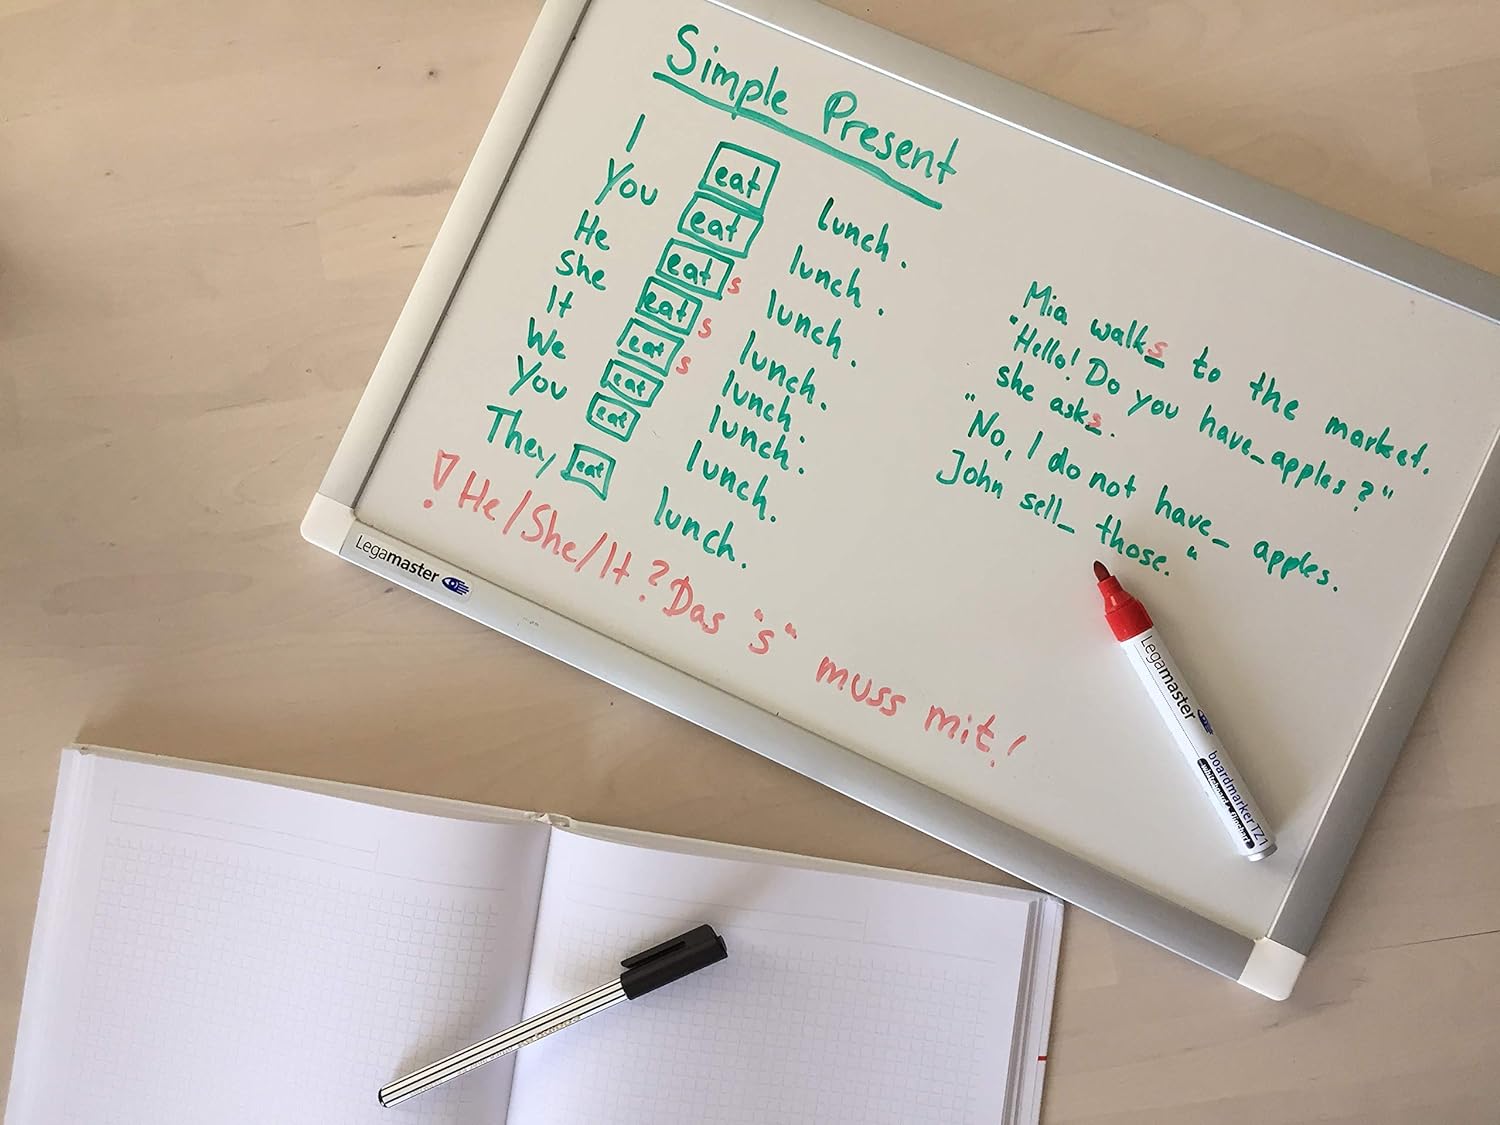 Simple Present
I eat lunch.
You eat lunch.
He eats lunch.
She eats lunch.
It eats lunch.
We eat lunch.
You eat lunch.
They eat lunch.
! He/She/It? Das "s" muss mit!
Mia walks to the market.
"Hello! Do you have_apples?"
she asks.
"No, I do not have_ apples.
John sell_ those."
Legamaster
Legamaster
boardmarker TZ1